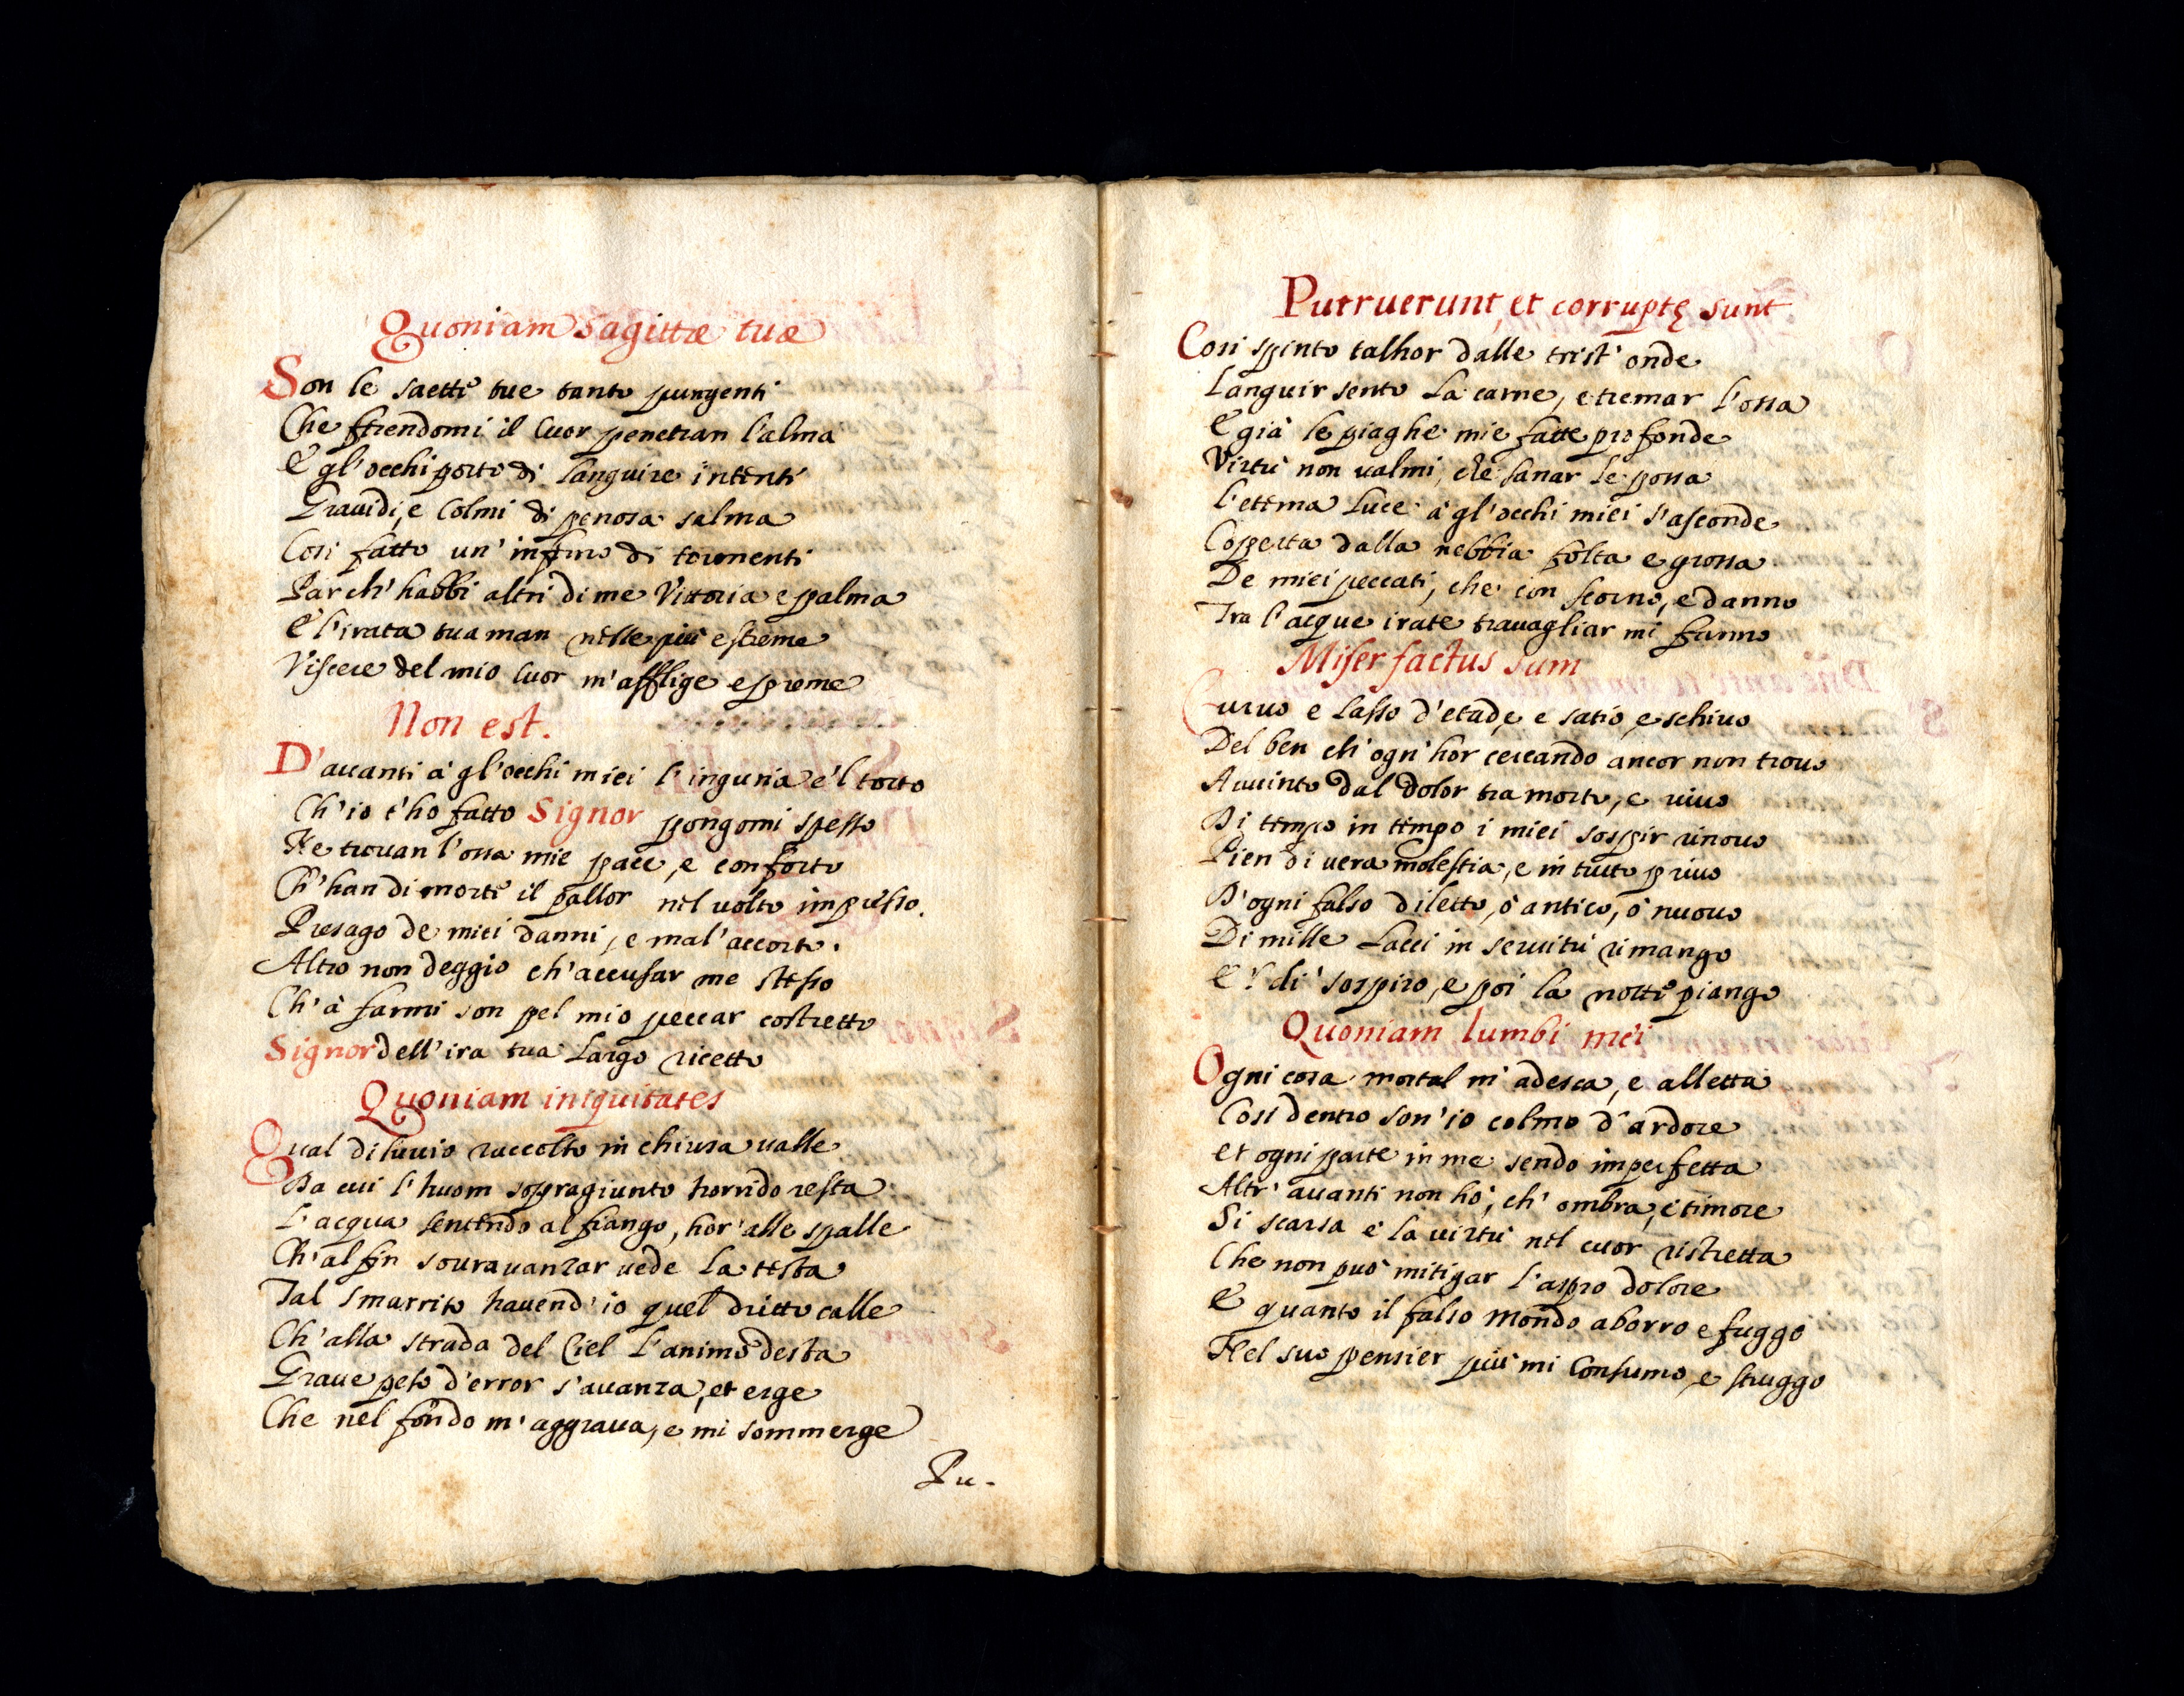 Quoniam sagittæ tuæ
Son le saette tue tanto pungenti
Che ferendomi il Cuor penetran l'alma
E gl'occhi porto di languire intenti
Grauidi, e Colmi di penosa salma
Cosi fatto un' inferno di tormenti
Par ch' habbi altri di me Vittoria e palma
E l'irata tua man nelle più estreme
Viscere del mio Cuor m'afflige e preme
Non est.
D'auanti à gl'occhi miei l'inguria e'l torto
Ch'io t'ho fatto Signor pongomi spesso
Ne trouan l'ossa mie pace, e conforto
Ch'han di morte il pallor nel uolto impresso.
Presago de miei danni, e mal'accorto.
Altro non deggio ch'accusar me stesso
Ch'à farmi son pel mio peccar costretto
Signor dell'ira tua Largo ricetto
Quoniam iniquitates
Qual diluuio raccolto in chiusa ualle
Da cui l'huom sopragiunto horrido resta
L'acqua sentendo al fiango, hor'alle spalle
Ch'al fin souravanzar uede la testa
Tal smarrito hauend'io quel dritto calle
Ch'alla strada del Ciel l'animo desta
Graue peso d'error s'auanza, et erge
Che nel fondo m'aggraua, e mi sommerge
Pu-
Putruerunt, et corruptę sunt
Cosi spinto talhor dalle trist'onde
Languir sento la carne, e tremar l'ossa
E già le piaghe mie fatte profonde
Virtù non ualmi, che sanar le possa
L'eterna Luce à gl'occhi miei s'asconde
Coperta dalla nebbia folta e grossa
De miei peccati, che con scorno, e danno
Tra l'acque irate trauagliar mi fanno
Miser factus sum
Curuo e lasso d'etade, e satio, e schiuo
Del ben ch'ogn'hor cercando ancor non trouo
Auuinto dal dolor tra morto, e uiuo
Di tempo in tempo i miei sospir rinouo
Pien di uera molestia, e in tutto priuo
D'ogni falso diletto, ò antico, ò nuouo
Di mille Lacci in seruitù rimango
E'l dì sospiro, e poi la notte piango
Quoniam lumbi mei
Ogni cosa mortal m'adesca, e alletta
Cosi dentro son'io colmo d'ardore
et ogni parte in me sendo imperfetta
Altr'auanti non hò, ch'ombra, e timore
Si scarsa è la uirtù nel cuor ristretta
Che non può mitigar l'aspro dolore
E quanto il falso mondo aborro e fuggo
Nel suo pensier più mi Consumo, e struggo